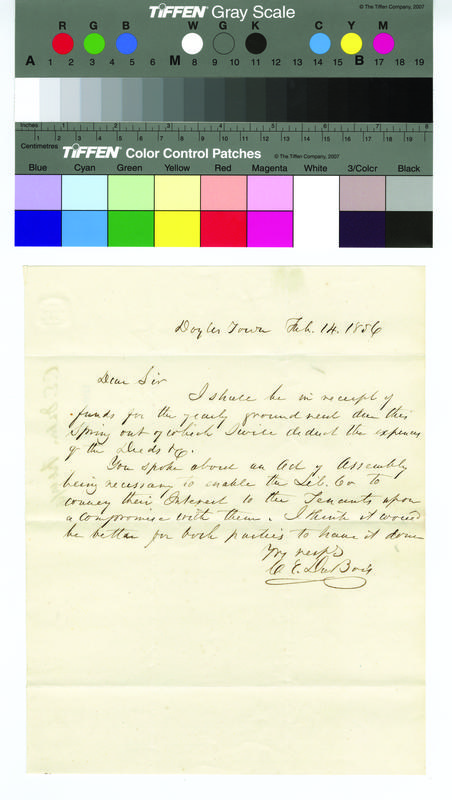 TIFFEN® Gray Scale
© The Tiffen Company, 2007
R G B W G K C Y M
A 1 2 3 4 5 6 M 8 9 10 11 12 13 14 15 B 17 18 19
Inches 1 2 3 4 5 6 7 8
Centimetres 1 2 3 4 5 6 7 8 9 10 11 12 13 14 15 16 17 18 19
TIFFEN® Color Control Patches
© The Tiffen Company, 2007
Blue Cyan Green Yellow Red Magenta White 3/Color Black
Doylestown Feb. 14. 1856
Dear Sir
I shall be in receipt of
funds for the yearly ground rent due this
Spring out of which I will deduct the expenses
of the Deeds &c.
You spoke about an Act of Assembly
being necessary to enable the Lib. Co to
convey their Interest to the Tenants upon
a compromise with them. I think it would
be better for both parties to have it done
Yrs respy
C E DuBois